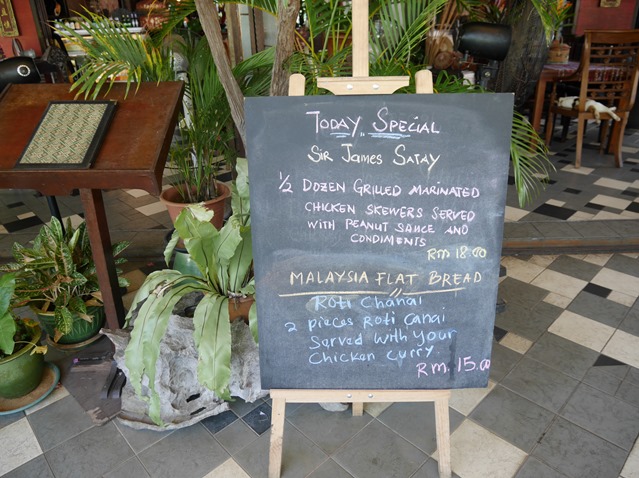 TODAY SPECIAL
SIR JAMES SATAY
1/2 DOZEN GRILLED MARINATED
CHICKEN SKEWERS SERVED
WITH PEANUT SAUCE AND
CONDIMENTS
RM 18.00
MALAYSIA FLAT BREAD
Roti Chanai
2 pieces Roti Canai
Served with Your
Chicken Curry
RM. 15.00